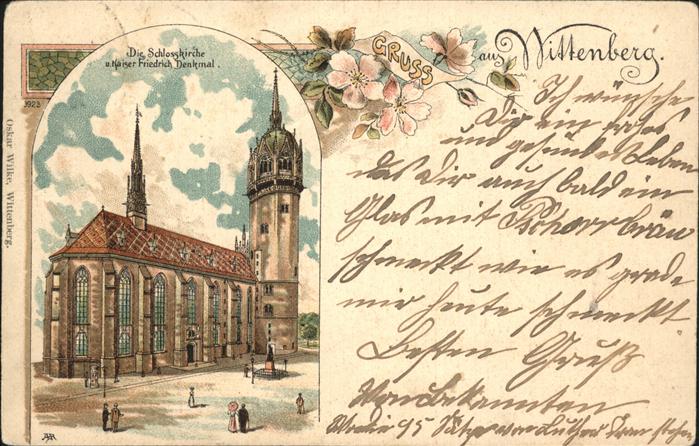 Die Schlosskirche
u. Kaiser Friedrich Denkmal.
1923
Oskar Wilke, Wittenberg.
GRUSS
aus Wittenberg.
Ich wünsche
Dir ein
und gesundes Leben
das Dir auch bald ein
Glas mit Pschorrbräu
schmeckt wie es grade
mir heute schmeckt
Besten Gruß
Von Bekannten
95 Sätze von Luther